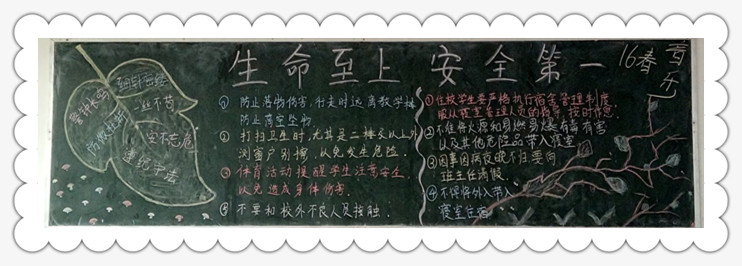 生命至上 安全第一
16春
警钟长鸣
防微杜渐
一丝不苟
安不忘危
遵纪守法
① 防止落物伤害,行走时远离教学楼
防止高空坠物
② 打扫卫生时,尤其是二楼及以上外
测窗户别擦,以免发生危险.
③ 体育活动提醒学生注意安全,
以免造成身体伤害.
④ 不要和校外不良人员接触.
①住校学生要严格执行宿舍管理制度,
服从寝室管理人员的指导,按时作息.
②不准将火源和易燃易爆有毒有害
以及其他危险品带入寝室
③因事因病夜晚不归要向
班主任请假.
④不得将外人带入
寝室住宿